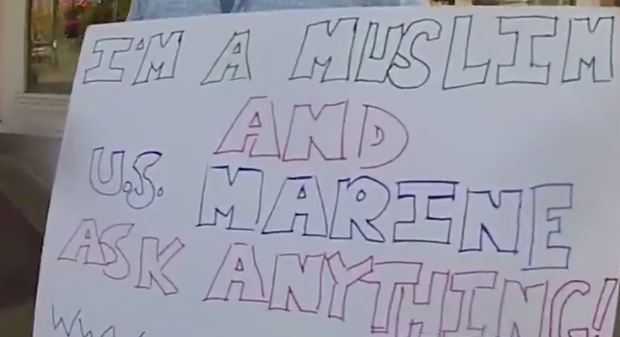 I'M A MUSLIM
AND
U.S. MARINE
ASK ANYTHING!